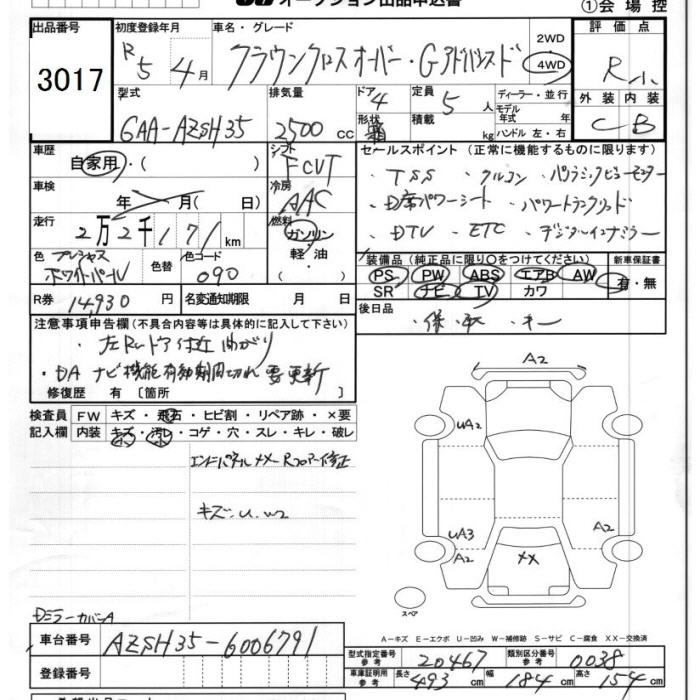 オークション出品申込書
①会場控
出品番号
3017
初度登録年月
R5 4月
車名・グレード
クラウンクロスオーバー・Gアドバンスド
2WD
4WD
評価点
R小
型式
6AA-AZSH35
排気量
2500 cc
ドア 4
形状 箱
定員 5 人
積載 kg
ディーラー・並行
モデル年式 年
ハンドル 左・右
外装 内装
C B
車歴
自家用・( )
シフト
FCVT
セールスポイント(正常に機能するものに限ります)
・TSS ・クルコン ・パノラミックビューモニター
・D席パワーシート ・パワートランクリッド
・DTV ・ETC ・デジタルインナーミラー
車検
年 月( 日)
冷房
AAC
走行
2万2千171km
燃料
ガソリン・軽油・
色 プレシャスホワイトパール
色替
色コード
090
装備品(純正品に限り○をつけてください)
PS PW ABS エアB AW
SR ナビ TV カワ
新車保証書
有・無
R券 14,930 円
名変通知期限 月 日
後日品
・保・取・キー
注意事項申告欄(不具合内容等は具体的に記入して下さい)
・左Rrドア付近曲がり
・DA ナビ機能有効期間切れ要更新
修復歴 有 〔箇所 〕
検査員記入欄
FW キズ・飛石・ヒビ割・リペア跡・×要
内装 キズ・汚レ・コゲ・穴・スレ・キレ・破レ
エンドパネルXX Rフロアー修正
キズ・U・W2
Dミラーカバー A
A2
UA2
UA3
A2
A2
XX
スペア
A-キズ E-エクボ U-凹み W-補修跡 S-サビ C-腐食 XX-交換済
車台番号
AZSH35-6006791
登録番号
型式指定番号 参考 20467
類別区分番号 参考 0038
車庫証明用 参考 長さ 493 cm 幅 184 cm 高さ 154 cm